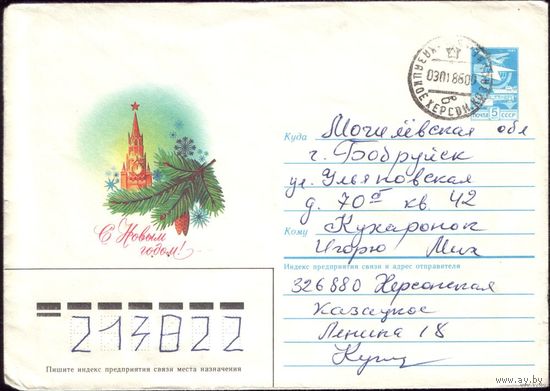 С Новым
годом!
03018600
ХЕРСОН.
ПОЧТА 5 СССР
Куда Могилёвская обл
г. Бобруйск
ул. Ульяновская
д. 70а кв. 42
Кому Кухаронок
Игорю Мих
Индекс предприятия связи и адрес отправителя
326880 Херсонская
Казацкое
Ленина 18
213822
Пишите индекс предприятия связи места назначения
www.ay.by